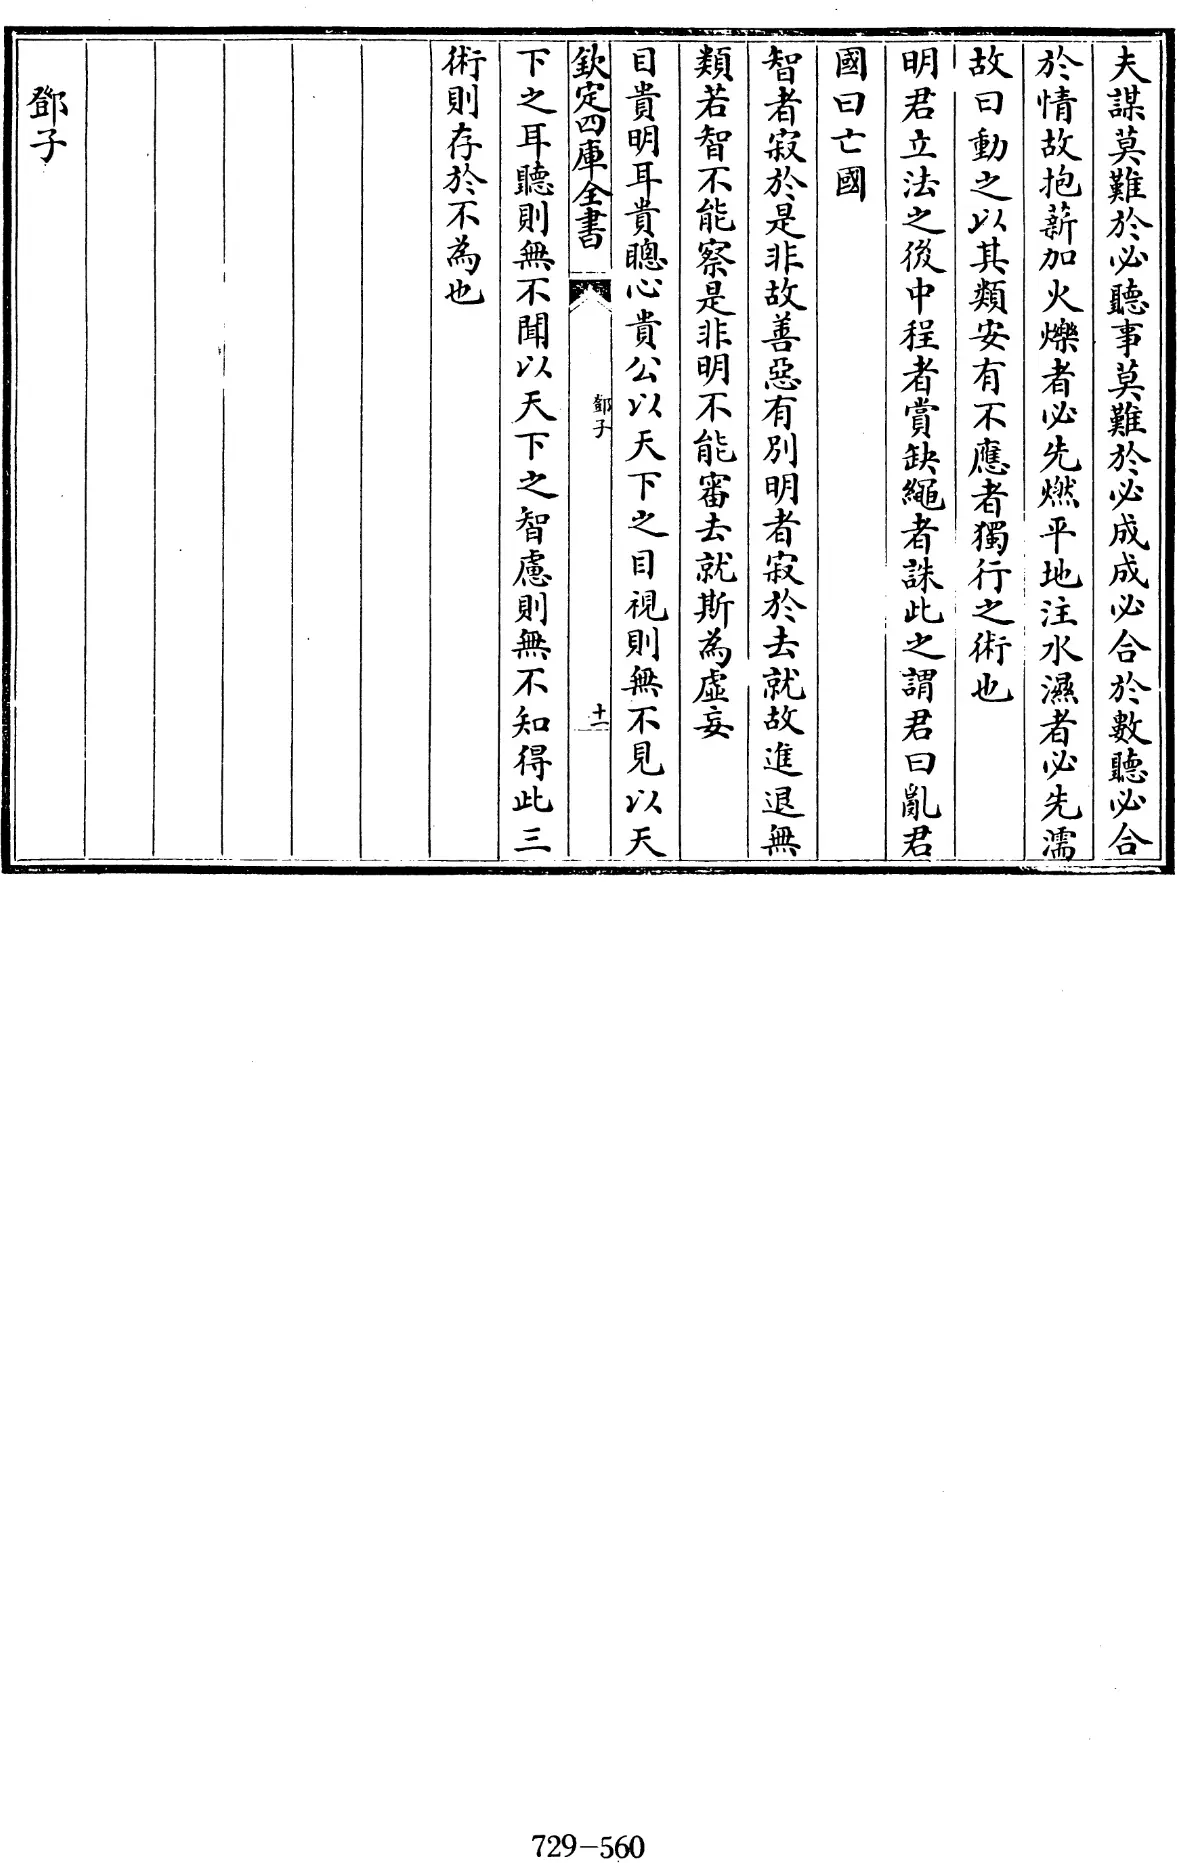 夫謀莫難於必聽事莫難於必成成必合於數聽必合
於情故抱薪加火爍者必先燃平地注水濕者必先濡
故曰動之以其類安有不應者獨行之術也
明君立法之後中程者賞缺繩者誅此之謂君曰亂君
國曰亡國
智者寂於是非故善惡有別明者寂於去就故進退無
類若智不能察是非明不能審去就斯為虛妄
目貴明耳貴聰心貴公以天下之目視則無不見以天
欽定四庫全書
鄧子
十二
下之耳聽則無不聞以天下之智慮則無不知得此三
術則存於不為也
鄧子
729-560